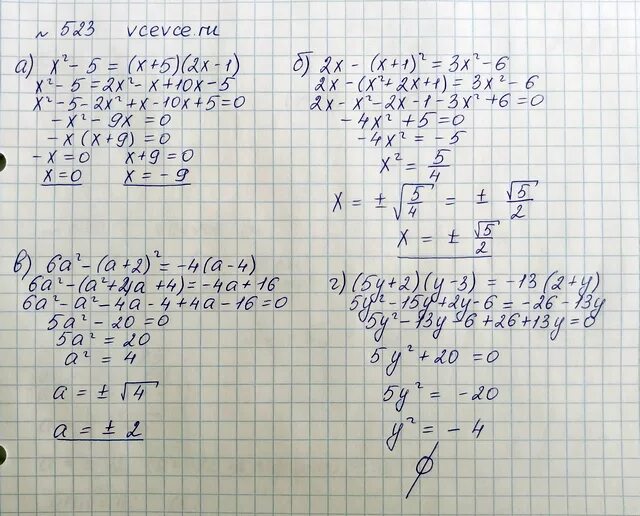 № 523 vcevce.ru
а) x² - 5 = (x+5)(2x-1)
x² - 5 = 2x² - x + 10x - 5
x² - 5 - 2x² + x - 10x + 5 = 0
- x² - 9x = 0
- x(x+9) = 0
- x = 0 x + 9 = 0
x = 0 x = - 9
б) 2x - (x+1)² = 3x² - 6
2x - (x² + 2x + 1) = 3x² - 6
2x - x² - 2x - 1 - 3x² + 6 = 0
- 4x² + 5 = 0
- 4x² = - 5
x² = 5/4
x = ± √(5/4) = ± √5/2
x = ± √5/2
в) 6a² - (a+2)² = -4(a-4)
6a² - (a² + 2)a + 4) = -4a + 16
6a² - a² - 4a - 4 + 4a - 16 = 0
5a² - 20 = 0
5a² = 20
a² = 4
a = ± √4
a = ± 2
г) (5y+2)(y-3) = -13(2+y)
5y² - 15y + 2y - 6 = -26 - 13y
5y² - 13y - 6 + 26 + 13y = 0
5y² + 20 = 0
5y² = -20
y² = - 4
∅